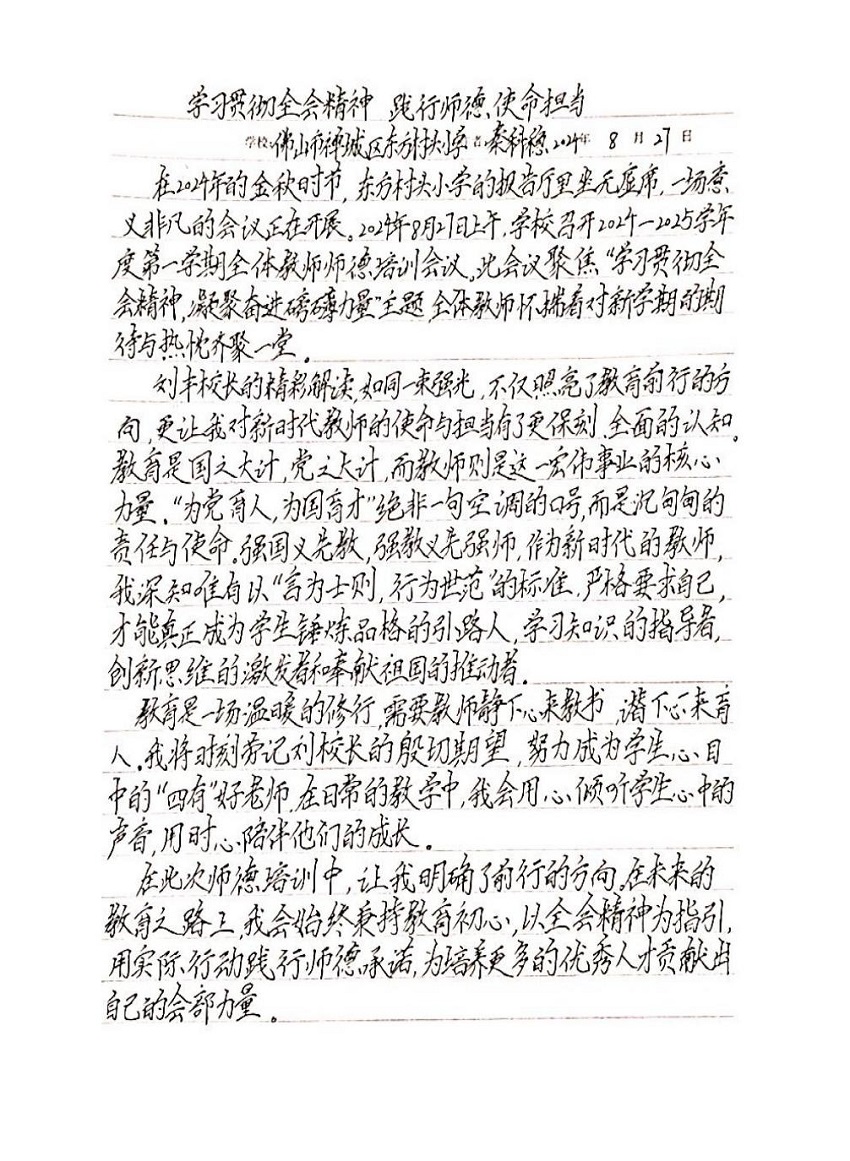 学习贯彻全会精神 践行师德使命担当
学校:佛山市禅城区东方村头小学 者:秦科穗 2024年 8 月 27 日
在2024年的金秋时节,东方村头小学的报告厅里坐无虚席,一场意
义非凡的会议正在开展。2024年8月27日上午,学校召开2024—2025学年
度第一学期全体教师师德培训会议。此会议聚焦“学习贯彻全
会精神,凝聚奋进磅礴力量”主题,全体教师怀揣着对新学期的期
待与热忱齐聚一堂。
刘丰校长的精彩解读,如同一束强光,不仅照亮了教育前行的方
向,更让我对新时代教师的使命与担当有了更保刻、全面的认知。
教育是国之大计,党之大计,而教师则是这一宏伟事业的核心
力量。“为党育人,为国育才”绝非一句空调的口号,而是沉甸甸的
责任与使命。强国义先教,强教义先强师,作为新时代的教师,
我深知唯有以“言为士则,行为世范”的标准,严格要求自己,
才能真正成为学生锤炼品格的引路人,学习知识的指导者,
创新思维的激发者和奉献祖国的推动者。
教育是一场温暖的修行,需要教师静下心来教书,谐下心来育
人。我将时刻劳记刘校长的殷切期望,努力成为学生心目
中的“四有”好老师,在日常的教学中,我会用心倾听学生心中的
声音,用时心陪伴他们的成长。
在此次师德培训中,让我明确了前行的方向。在未来的
教育之路上,我会始终秉持教育初心,以全会精神为指引,
用实际行动践行师德承诺,为培养更多的优秀人才贡献出
自己的会部力量。